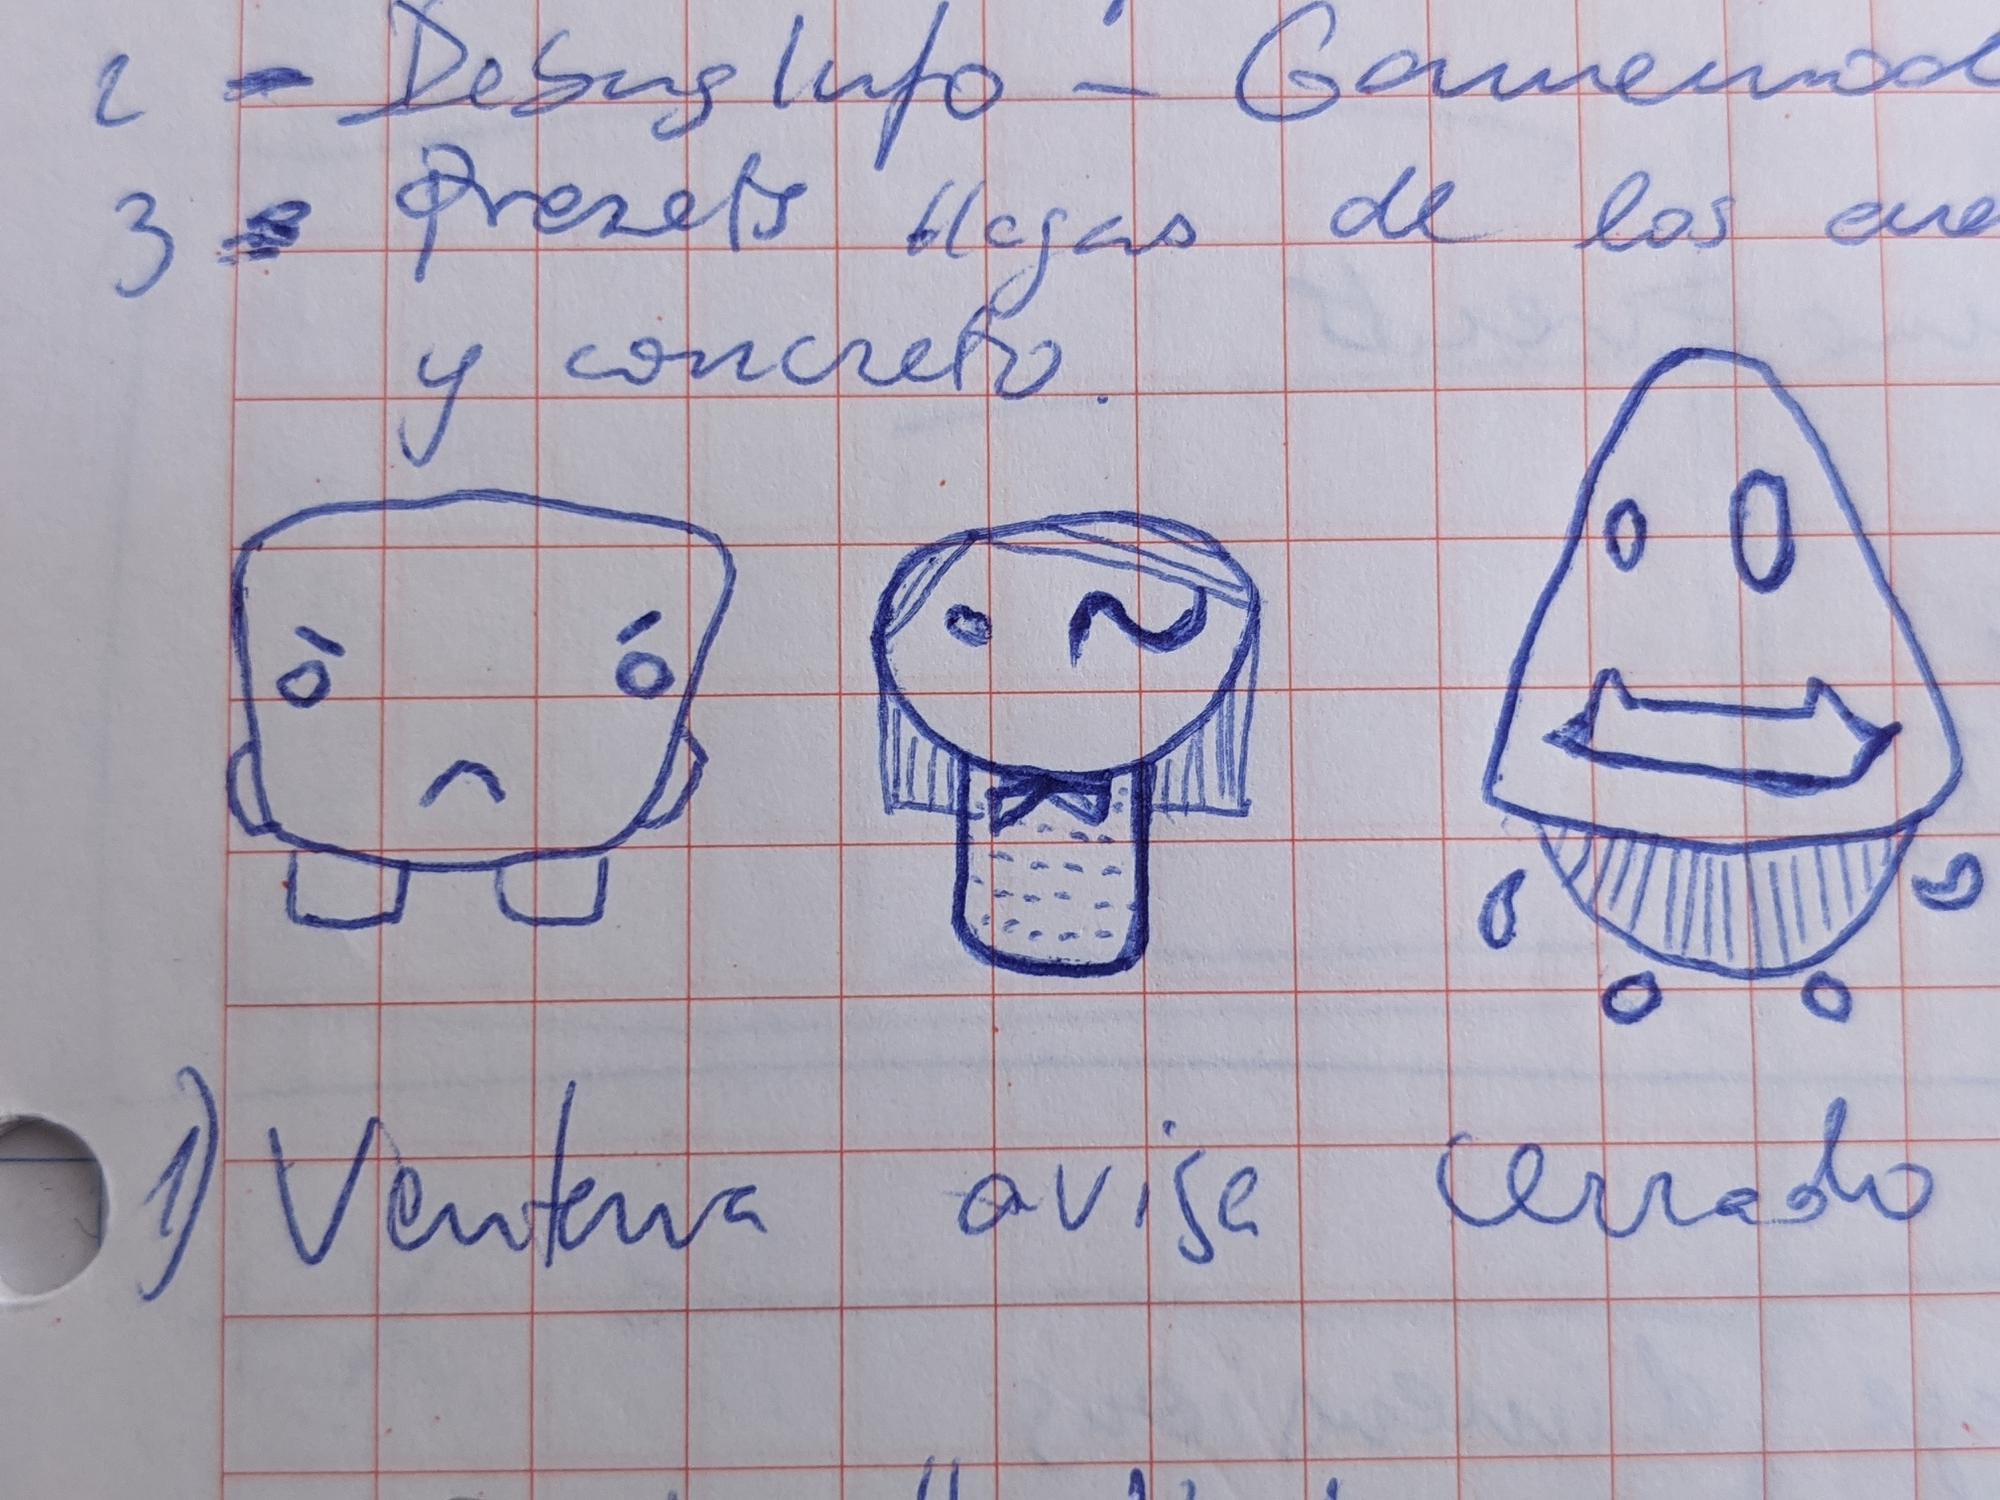 2 - Debug Info - Gamemod
3 - Presets llegas de los
y concreto.
1) Ventana avisa cerrado